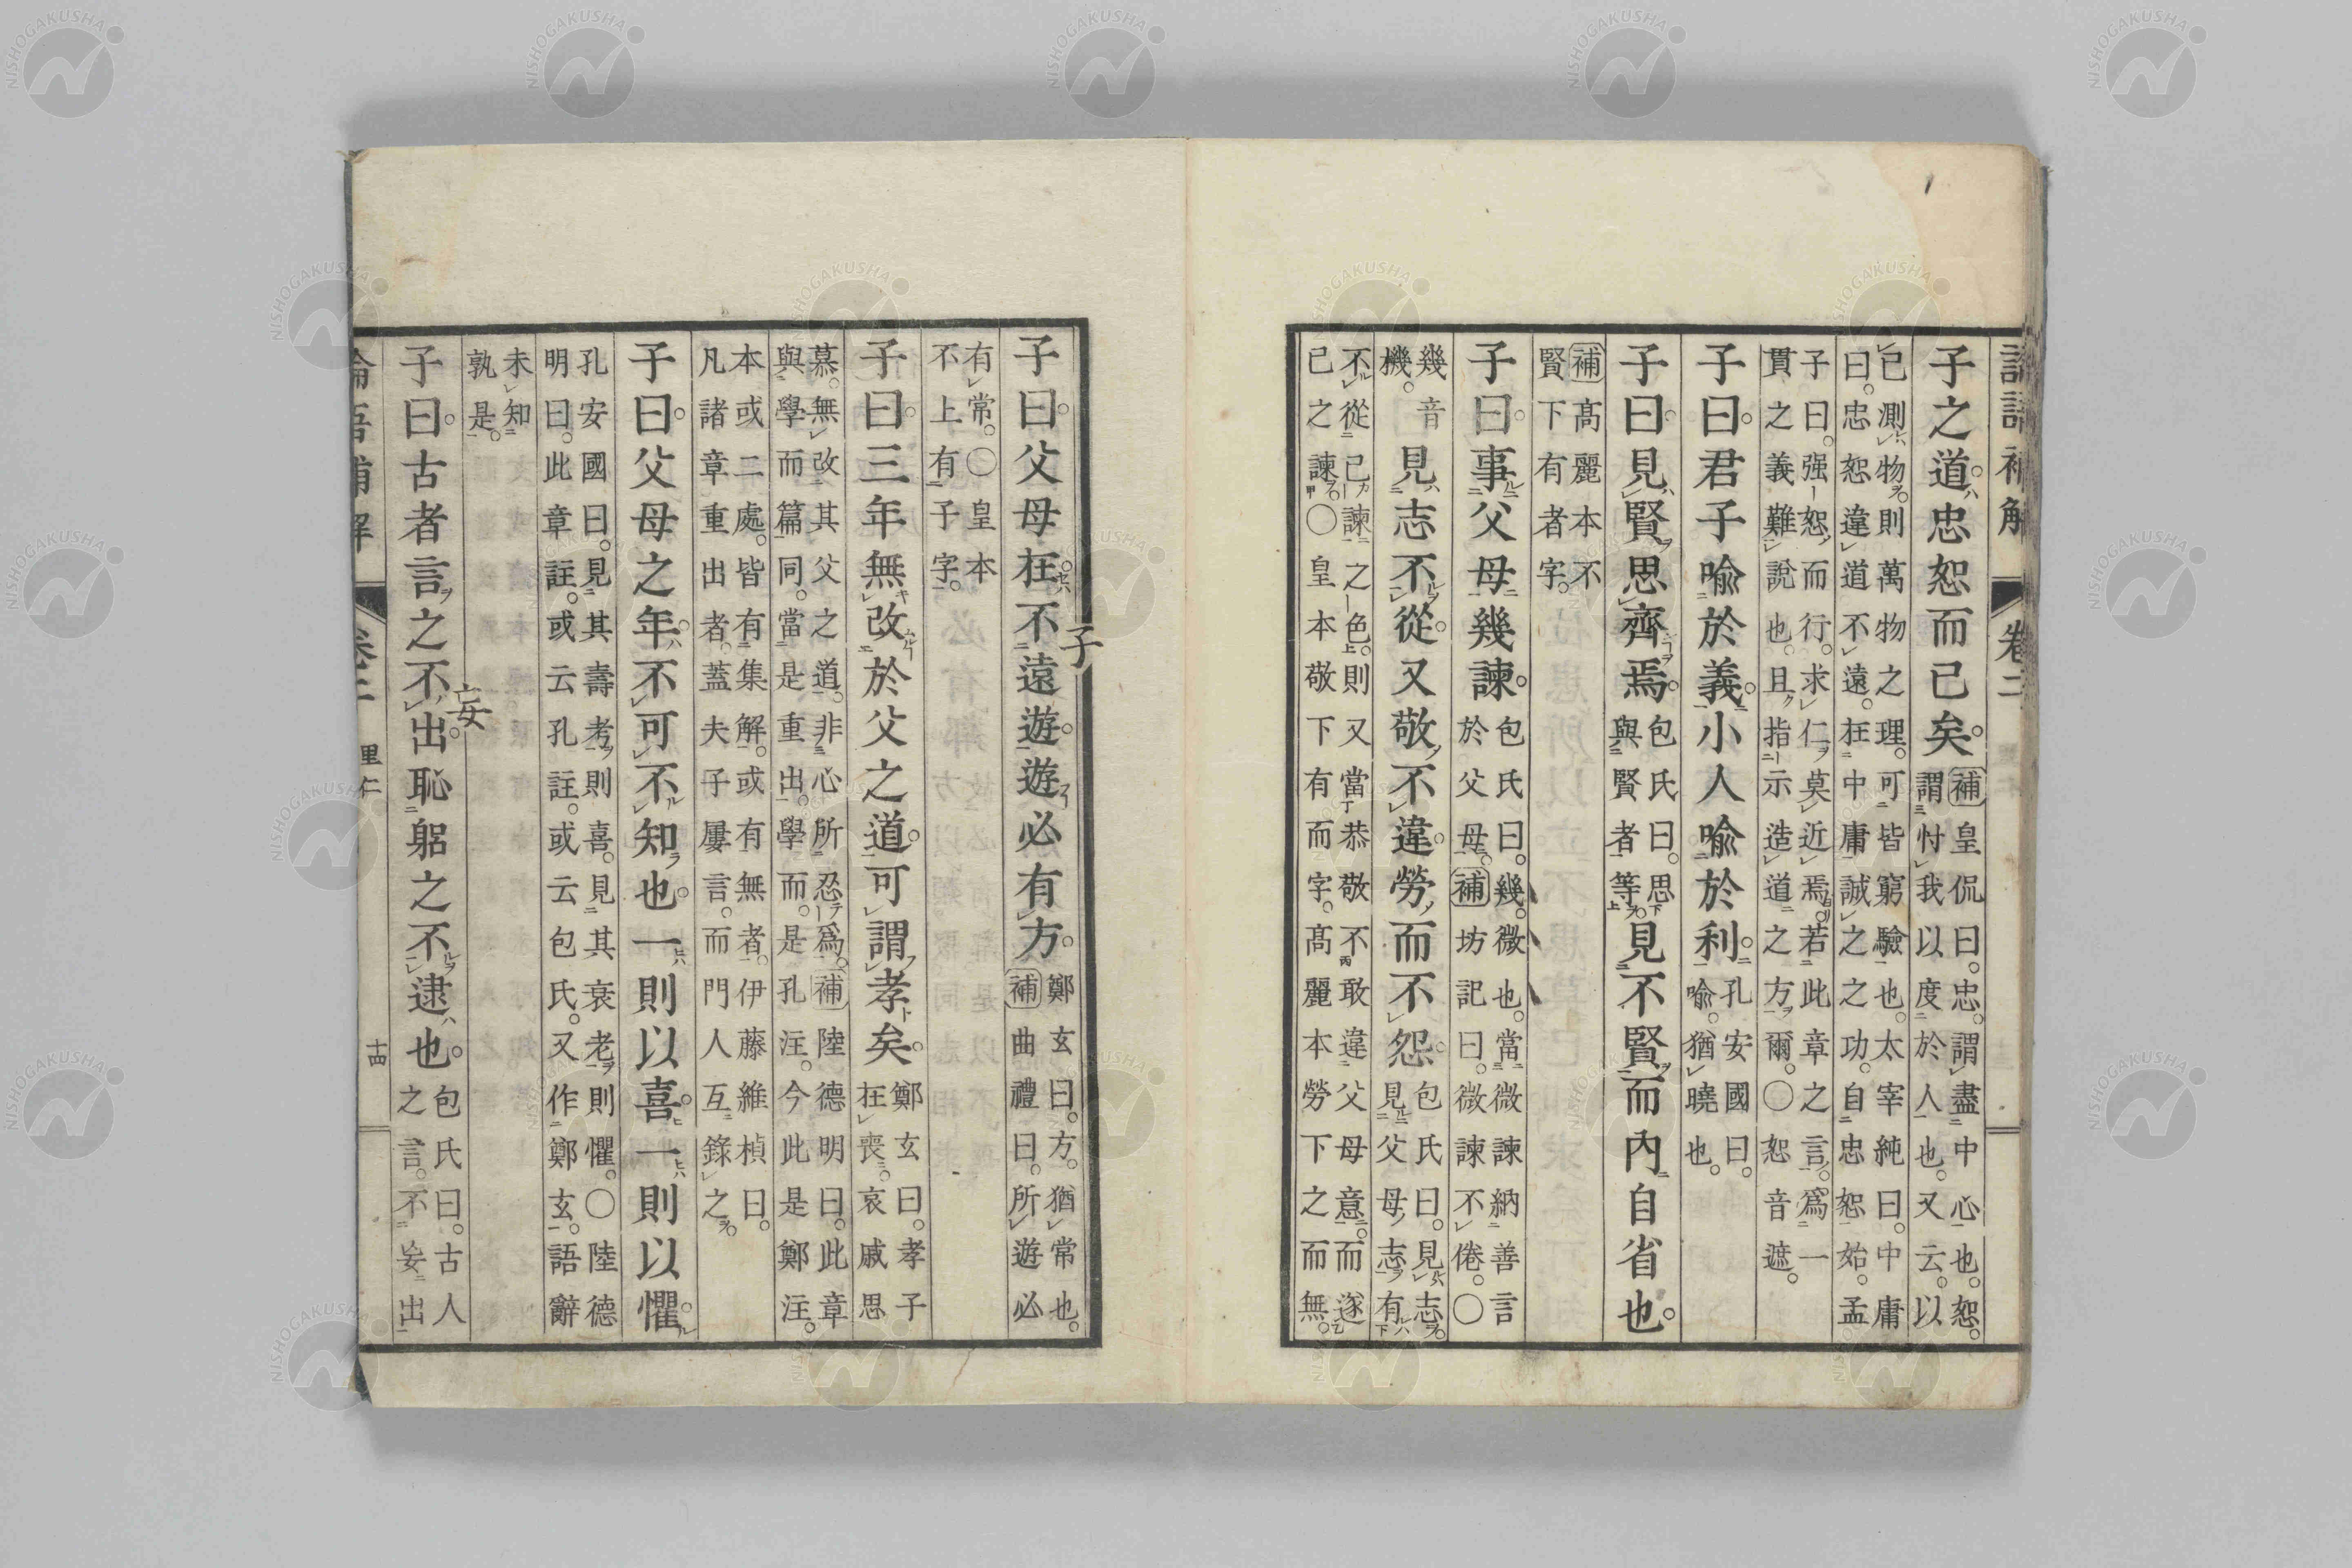 子之道忠恕而已矣補皇侃曰忠謂盡中心也恕
謂忖我以度於人也又云以
已測物則萬物之理可皆窮驗也太宰純曰中庸
曰忠恕違道不遠在中庸誠之之功自忠恕始孟
子曰强恕而行求仁莫近焉若此章之言爲一
貫之義難說也且指示造道之方爾○恕音遮
子曰君子喩於義小人喩於利孔安國曰
喩猶曉也
子曰見賢思齊焉包氏曰思
與賢者等見不賢而内自省也
補髙麗本不
賢下有者字
子曰事父母幾諫包氏曰幾微也當微諫納善言
於父母補坊記曰微諫不倦○
幾音
機見志不從又敬不違勞而不怨包氏曰見志
見父母志有
不從己諫之色則又當恭敬不敢違父母意而遂
己之諫○皇本敬下有而字髙麗本勞下之而無
子曰父母在不遠遊遊必有方鄭玄曰方猶常也
補曲禮曰所遊必
子
有常○皇本
不上有子字
子曰三年無改於父之道可謂孝矣鄭玄曰孝子
在喪哀戚思
慕無改其父之道非心所忍爲補陸德明曰此章
與學而篇同當是重出學而是孔注今此是鄭注
本或二處皆有集解或有無者伊藤維楨曰
凡諸章重出者蓋夫子屢言而門人互錄之
子曰父母之年不可不知也一則以喜一則以懼
孔安國曰見其壽考則喜見其衰老則懼○陸德
明曰此章註或云孔註或云包氏又作鄭玄語辭
未知
孰是
子曰古者言之不出恥躬之不逮也包氏曰古人
之言不妄出
妄
論吾補解 卷二 里仁 十四
語語補解 卷二
NISHOGAKUSHA